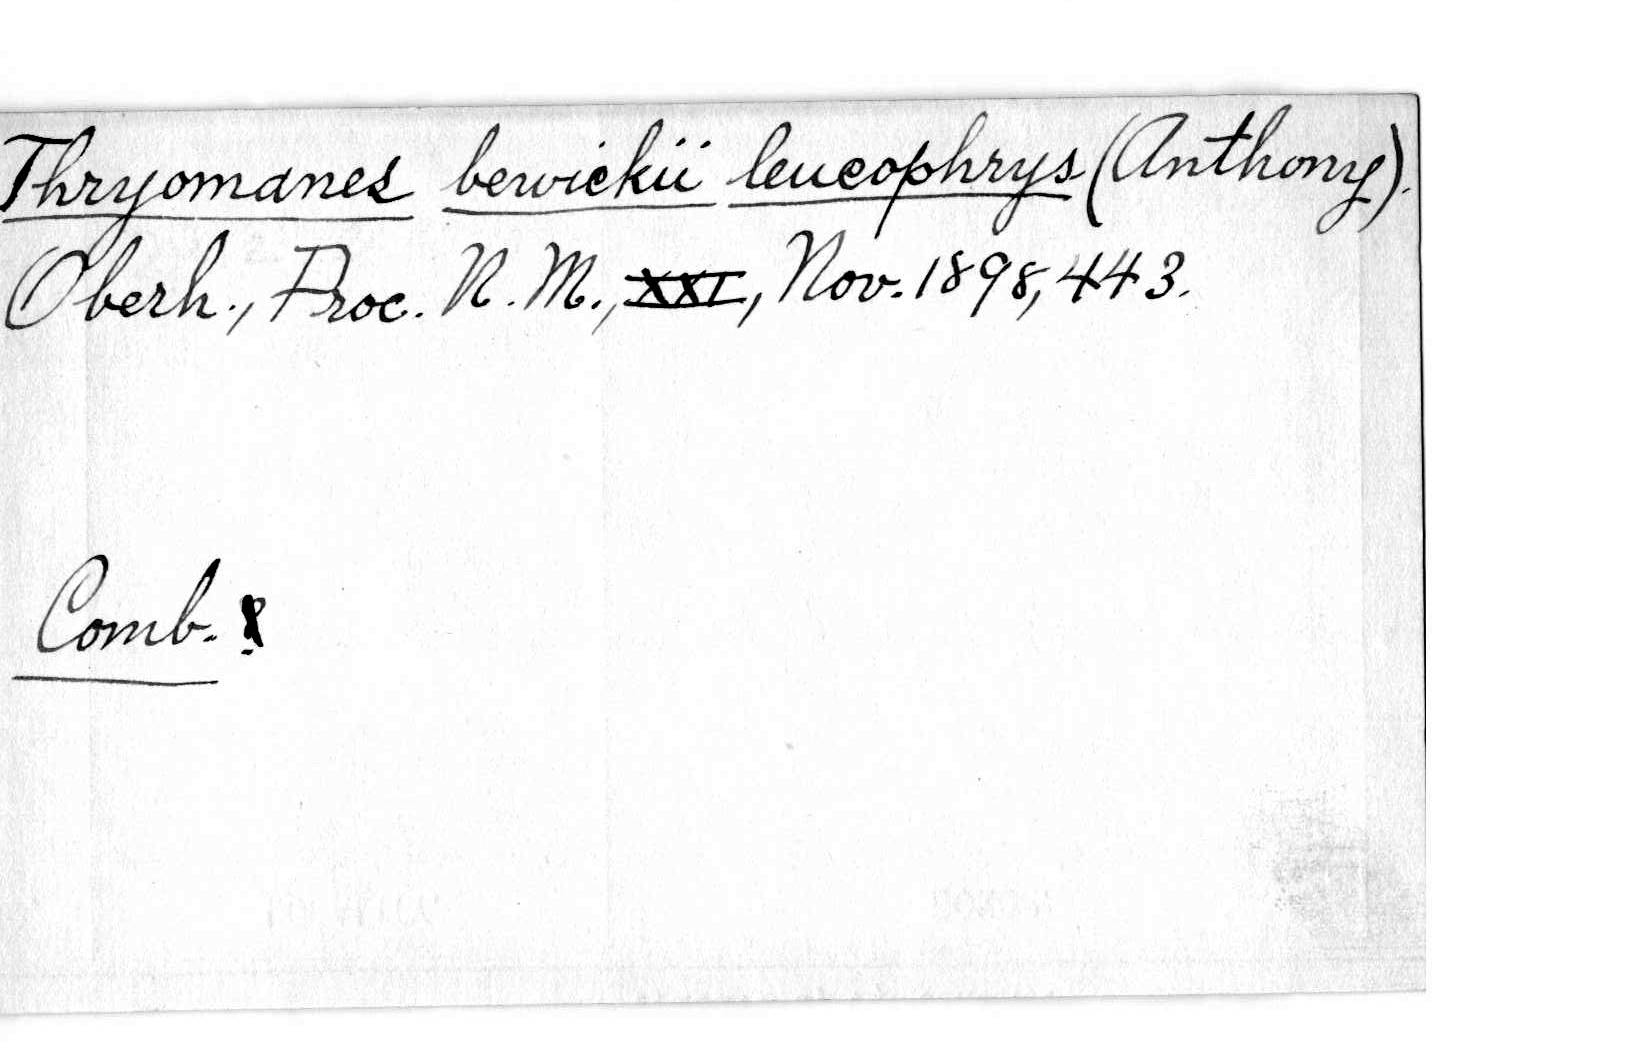 Thryomanes bewickii leucophrys (Anthony).
Oberh., Proc. N. M., XXI, Nov. 1898, 443.
Comb.